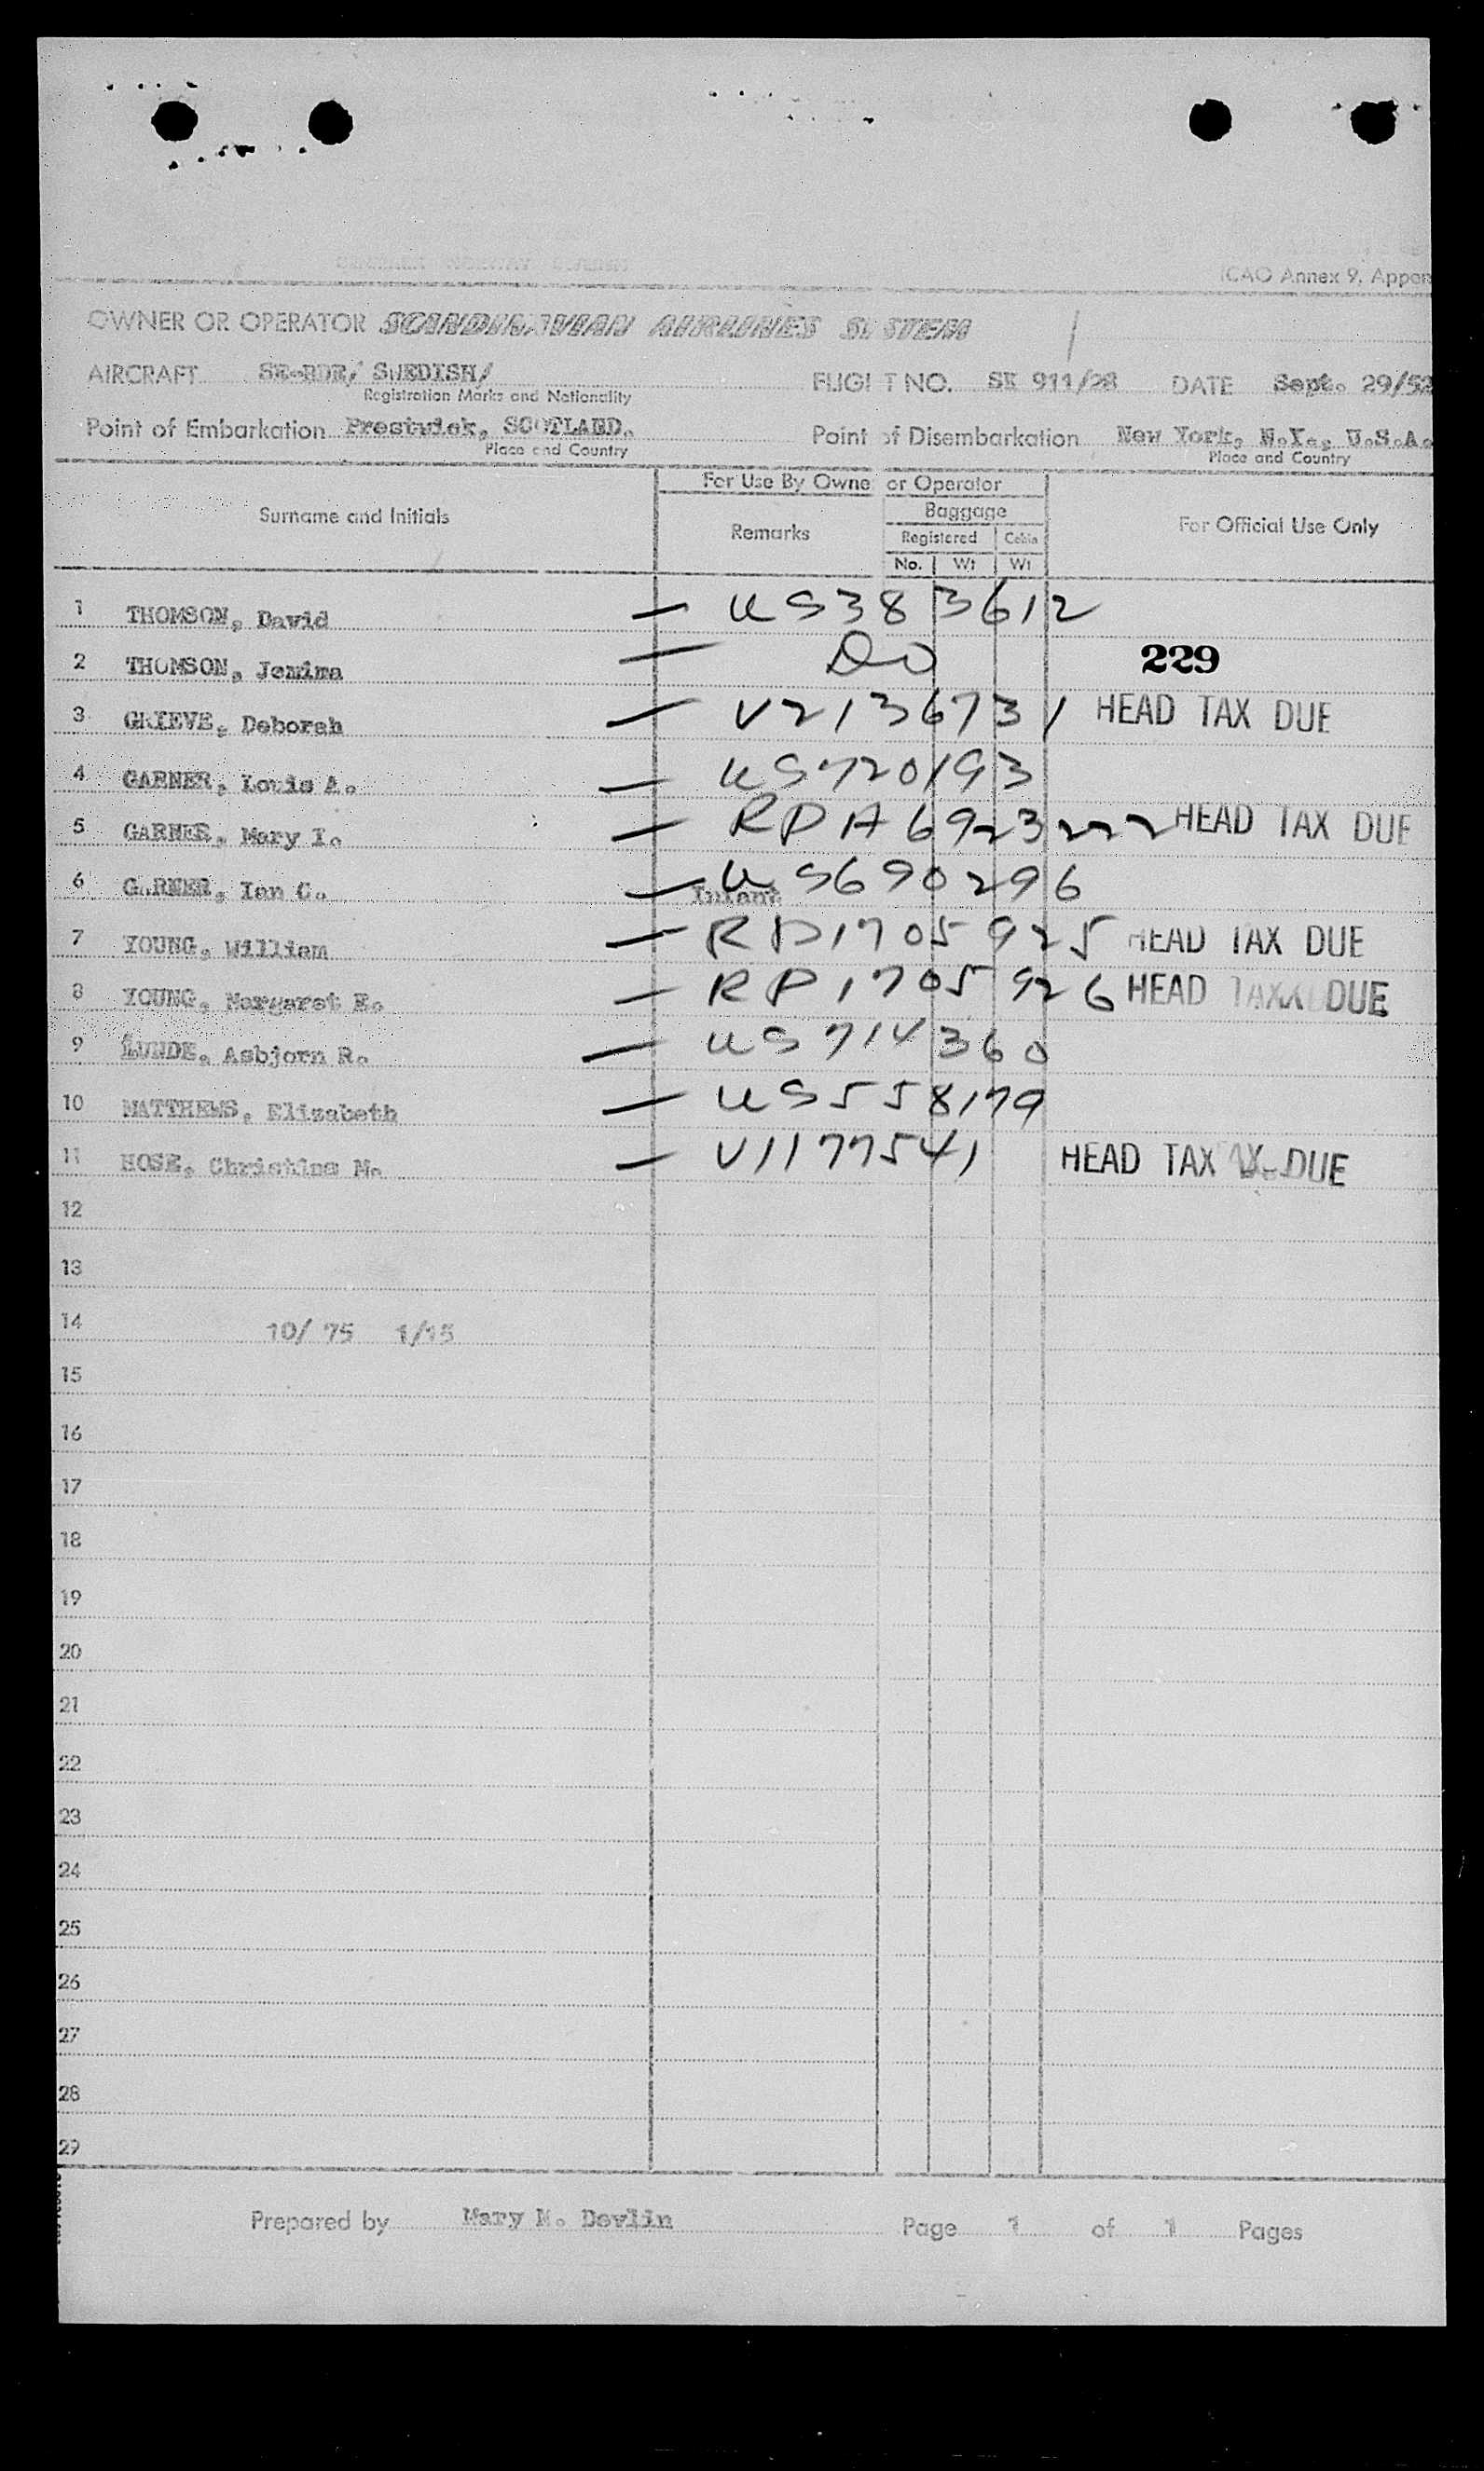 ICAO Annex 9, Appen
OWNER OR OPERATOR SCANDINAVIAN AIRLINES SYSTEM
AIRCRAFT SE-BDR/ SWEDISH/ FLIGHT NO. SK 911/28 DATE Sept. 29/52
Registration Marks and Nationality
Point of Embarkation Prestwick, SCOTLAND. Point of Disembarkation New York, N.Y., U.S.A.
Place and Country Place and Country
For Use By Owner or Operator
Surname and Initials Remarks Baggage For Official Use Only
Registered Cabin
No. Wt Wt
1 THOMSON, David — US383612
2 THOMSON, Jemima — Do 229
3 GRIEVE, Deborah — V2136731 HEAD TAX DUE
4 GARNER, Louis A. — US720193
5 GARNER, Mary I. — RPA6923222 HEAD TAX DUE
6 GARNER, Ian C. — Infant US690296
7 YOUNG, William — RP1705925 HEAD TAX DUE
8 YOUNG, Margaret E. — RP1705926 HEAD TAX DUE
9 LUNDE, Asbjorn R. — US714360
10 MATTHEWS, Elizabeth — US558179
11 HOSE, Christina M. — V1177541 HEAD TAX DUE
12
13
14 10/ 75 1/15
15
16
17
18
19
20
21
22
23
24
25
26
27
28
29
Prepared by Mary M. Devlin Page 1 of 1 Pages